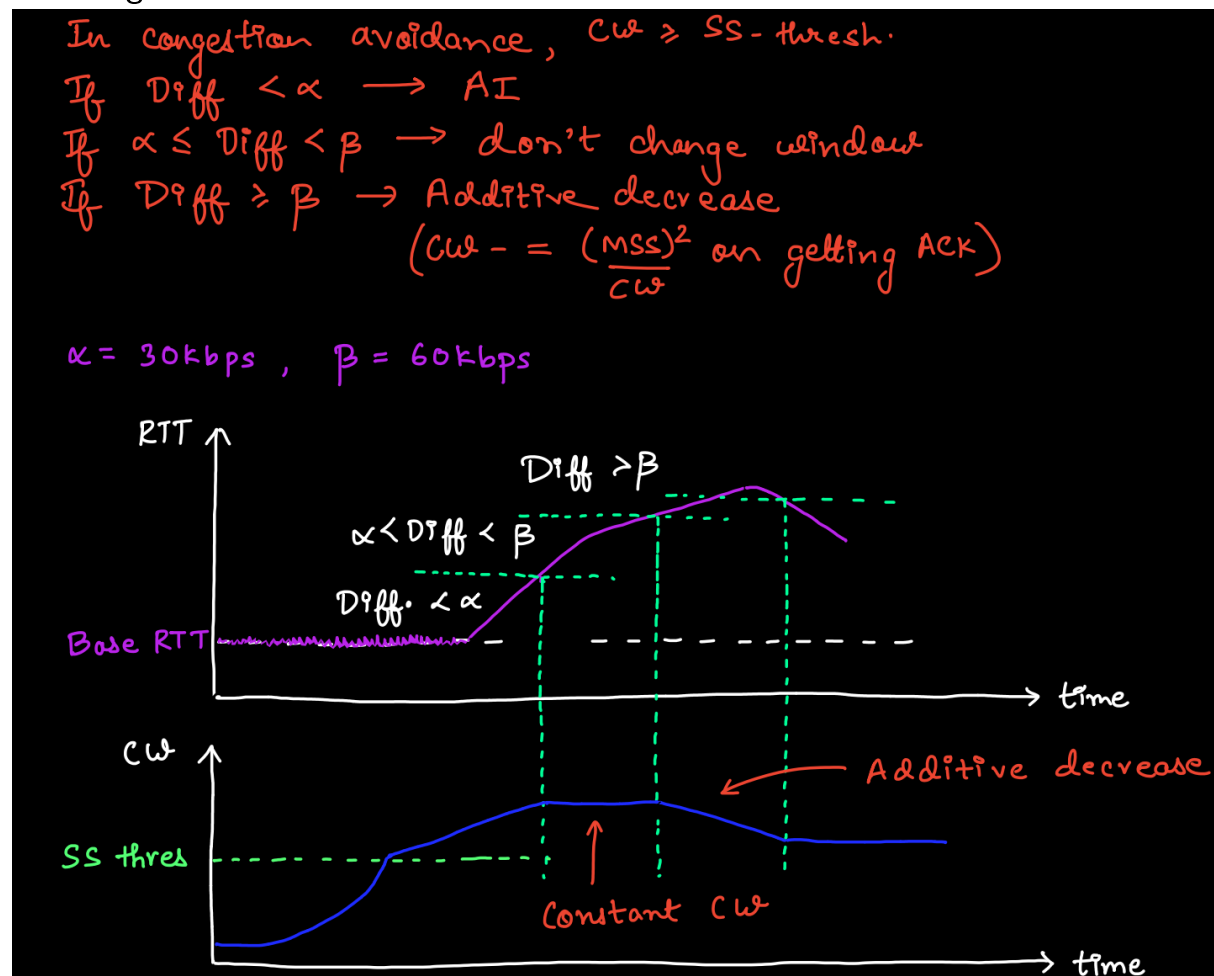 In congestion avoidance, CW ≥ SS-thresh.
If Diff < α → AI
If α ≤ Diff < β → don't change window
If Diff ≥ β → Additive decrease
(CW -= (MSS)²/CW on getting ACK)
α = 30kbps, β = 60kbps
RTT
Diff > β
α < Diff < β
Diff. < α
Base RTT
time
CW
Additive decrease
SS thres
Constant CW
time